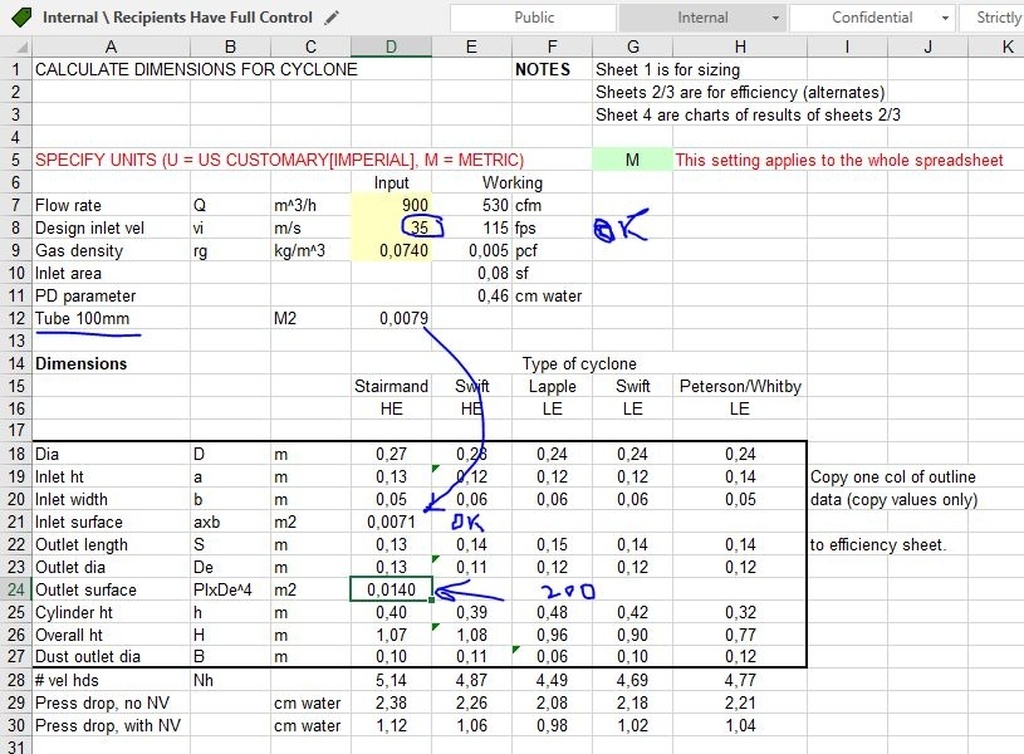 Internal \ Recipients Have Full Control Public Internal Confidential Strictly
A B C D E F G H I J K
1 CALCULATE DIMENSIONS FOR CYCLONE NOTES Sheet 1 is for sizing
2 Sheets 2/3 are for efficiency (alternates)
3 Sheet 4 are charts of results of sheets 2/3
4
5 SPECIFY UNITS (U = US CUSTOMARY[IMPERIAL], M = METRIC) M This setting applies to the whole spreadsheet
6 Input Working
7 Flow rate Q m^3/h 900 530 cfm
8 Design inlet vel vi m/s 35 115 fps OK
9 Gas density rg kg/m^3 0,0740 0,005 pcf
10 Inlet area 0,08 sf
11 PD parameter 0,46 cm water
12 Tube 100mm M2 0,0079
13
14 Dimensions Type of cyclone
15 Stairmand Swift Lapple Swift Peterson/Whitby
16 HE HE LE LE LE
17
18 Dia D m 0,27 0,28 0,24 0,24 0,24
19 Inlet ht a m 0,13 0,12 0,12 0,12 0,14 Copy one col of outline
20 Inlet width b m 0,05 0,06 0,06 0,06 0,05 data (copy values only)
21 Inlet surface axb m2 0,0071 OK
22 Outlet length S m 0,13 0,14 0,15 0,14 0,14 to efficiency sheet.
23 Outlet dia De m 0,13 0,11 0,12 0,12 0,12
24 Outlet surface PIxDe^4 m2 0,0140 200
25 Cylinder ht h m 0,40 0,39 0,48 0,42 0,32
26 Overall ht H m 1,07 1,08 0,96 0,90 0,77
27 Dust outlet dia B m 0,10 0,11 0,06 0,10 0,12
28 # vel hds Nh 5,14 4,87 4,49 4,69 4,77
29 Press drop, no NV cm water 2,38 2,26 2,08 2,18 2,21
30 Press drop, with NV cm water 1,12 1,06 0,98 1,02 1,04
31